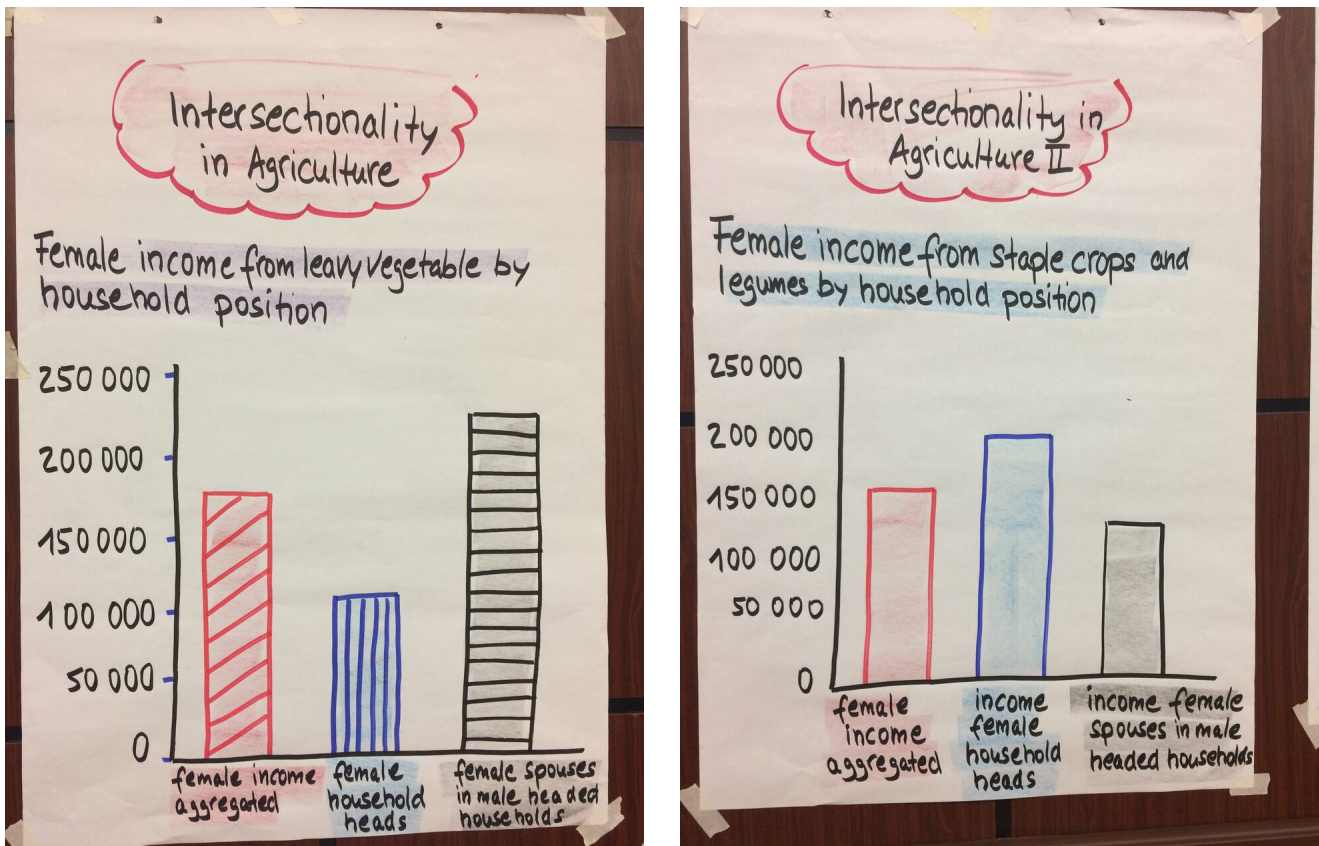 Intersectionality
in Agriculture
Female income from leavy vegetable by
household position
250 000
200 000
150 000
100 000
50 000
0
female income
aggregated
female
household
heads
female spouses
in male headed
households
Intersectionality in
Agriculture II
Female income from staple crops and
legumes by household position
250 000
200 000
150 000
100 000
50 000
0
female
income
aggregated
income
female
household
heads
income female
spouses in male
headed households